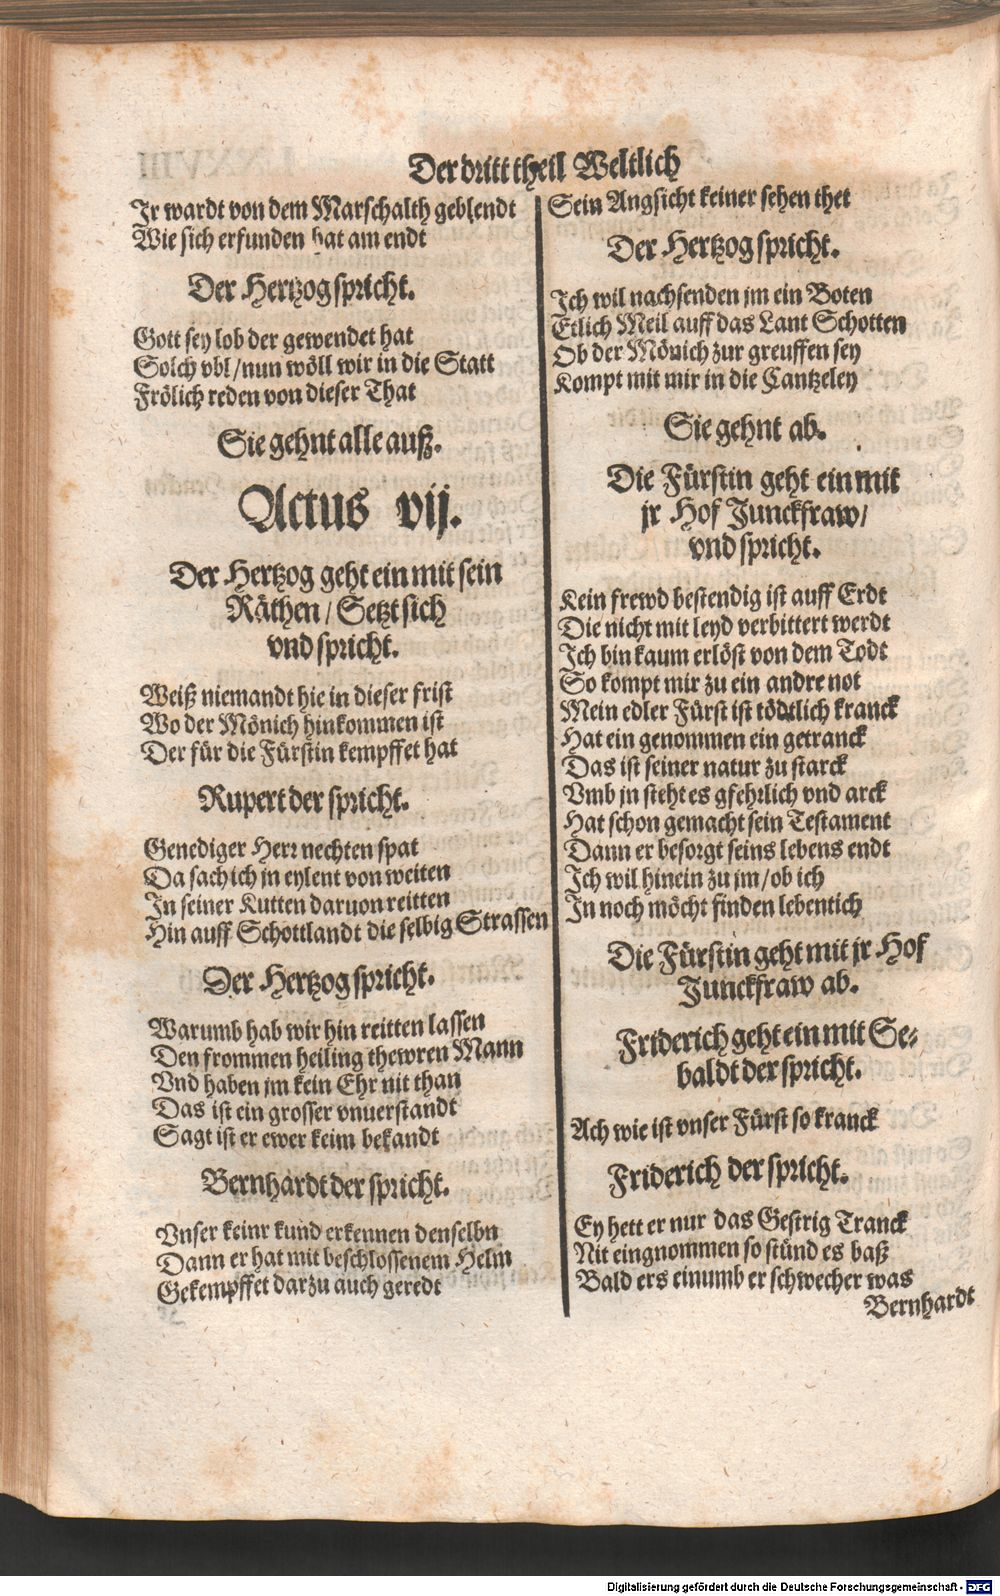 Der dritt theil Weltlich
Jr wardt von dem Marschalth geblendt
Wie sich erfunden hat am endt
Der Hertzog spricht.
Gott sey lob der gewendet hat
Solch vbl/nun wöll wir in die Statt
Frölich reden von dieser That
Sie gehnt alle auß.
Actus vij.
Der Hertzog geht ein mit sein
Räthen/Setzt sich
vnd spricht.
Weiß niemandt hie in dieser frist
Wo der Mönich hinkommen ist
Der für die Fürstin kempffet hat
Rupert der spricht.
Genediger Herr nechten spat
Da sach ich jn eylent von weiten
In seiner Kutten daruon reitten
Hin auff Schottlandt die selbig Strassen
Der Hertzog spricht.
Warumb hab wir hin reitten lassen
Den frommen heiling thewren Mann
Vnd haben jm kein Ehr nit than
Das ist ein grosser vnuerstandt
Sagt ist er ewer keim bekandt
Bernhardt der spricht.
Vnser keinr kund erkennen denselbn
Dann er hat mit beschlossenem Helm
Gekempffet darzu auch geredt
Sein Angsicht keiner sehen thet
Der Hertzog spricht.
Ich wil nachsenden jm ein Boten
Etlich Meil auff das Lant Schotten
Ob der Mönich zur greuffen sey
Kompt mit mir in die Cantzeley
Sie gehnt ab.
Die Fürstin geht ein mit
jr Hof Junckfraw/
vnd spricht.
Kein frewd bestendig ist auff Erdt
Die nicht mit leyd verbittert werdt
Ich bin kaum erlöst von dem Todt
So kompt mir zu ein andre not
Mein edler Fürst ist tödtlich kranck
Hat ein genommen ein getranck
Das ist seiner natur zu starck
Vmb jn steht es gfehrlich vnd arck
Hat schon gemacht sein Testament
Dann er besorgt seins lebens endt
Ich wil hinein zu jm/ob ich
In noch möcht finden lebentich
Die Fürstin geht mit jr Hof
Junckfraw ab.
Friderich geht ein mit Se-
baldt der spricht.
Ach wie ist vnser Fürst so kranck
Friderich der spricht.
Ey hett er nur das Gestrig Tranck
Nit eingnommen so stünd es baß
Bald ers einumb er schwecher was
Bernhardt
Digitalisierung gefördert durch die Deutsche Forschungsgemeinschaft - DFG